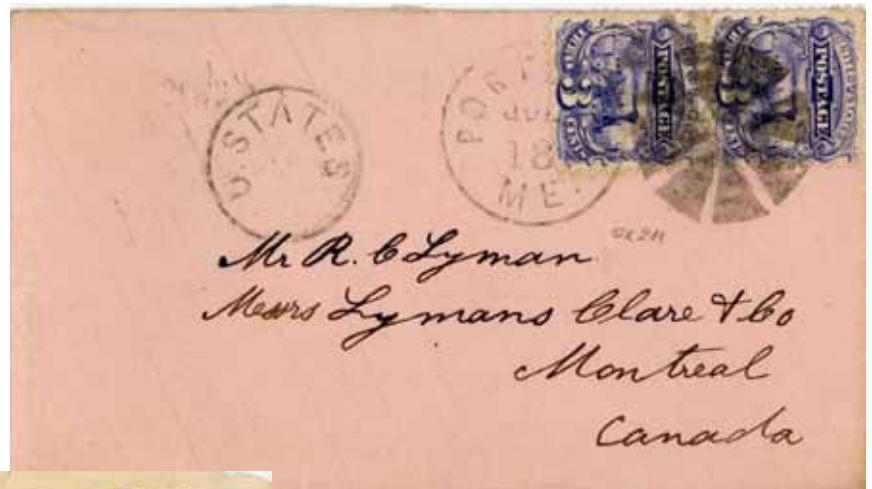 U STATES
PORT
JUL
18
ME.
POSTAGE
POSTAGE
3
3
Mr R. C Lyman
Messrs Lymans Clare & Co
Montreal
Canada